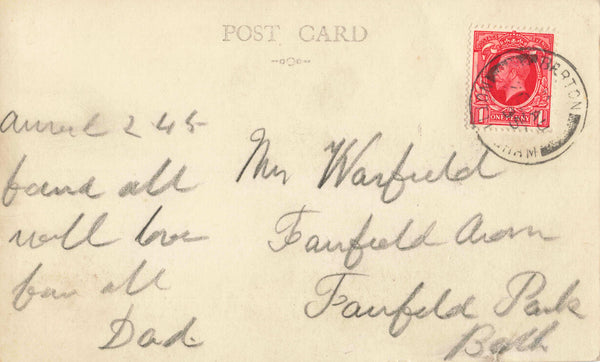 POST CARD
arrived 2 45
found all
well love
from all
Dad.
Mr Warfield
Fairfield Avon
Fairfield Park
Bath
1 ONE PENNY 1
BERTON
HAM